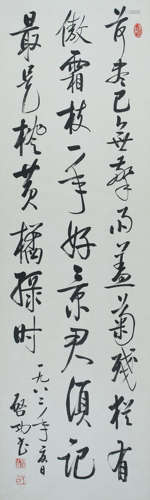 荷尽已無擎雨盖菊残猶有
傲霜枝一年好景君须记
最是橙黄橘绿时
一九八二年
啓功书